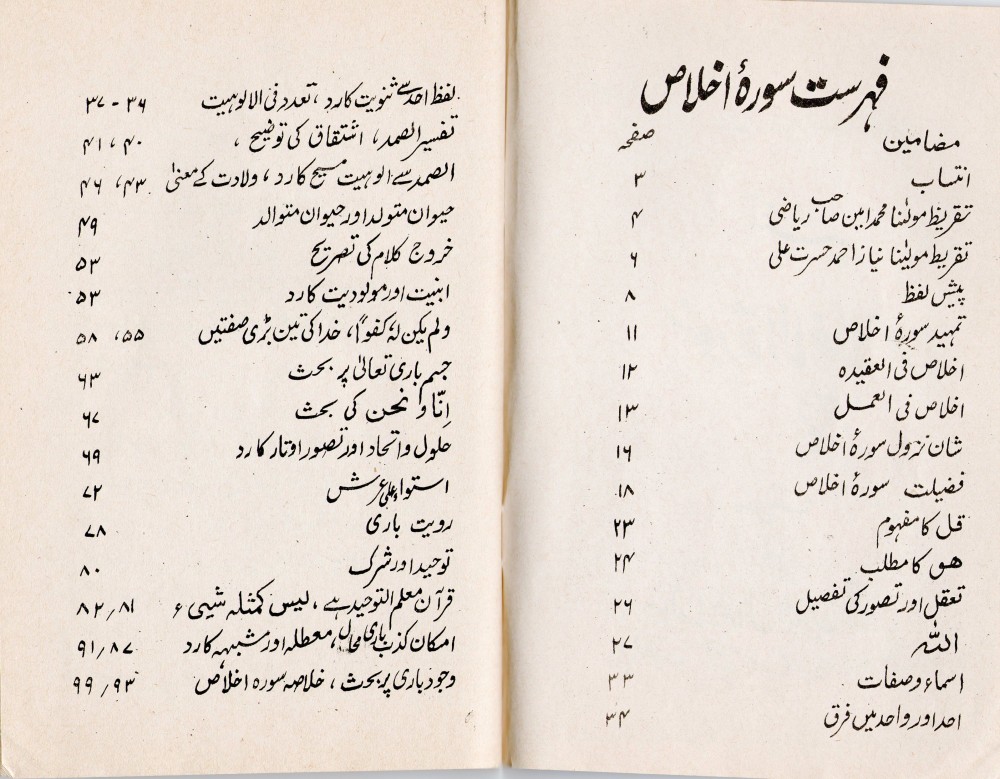 فہرست سورۂ اخلاص
مضامین صفحہ
انتساب ۳
تقریظ مولٰنا محمد امین صاحب ریاضی ۴
تقریظ مولٰینا نیاز احمد حسرت علی ۶
پیش لفظ ۸
تمہید سورۂ اخلاص ۱۱
اخلاص فی العقیدہ ۱۲
اخلاص فی العمل ۱۳
شان نزول سورۂ اخلاص ۱۶
فضیلت سورۂ اخلاص ۱۸
قل کا مفہوم ۲۳
ھو کا مطلب ۲۴
تعقل اور تصور کی تفصیل ۲۶
اللہ ۲۷
اسماء و صفات ۳۳
احد اور واحد میں فرق ۳۴
لفظ احد سے ثنویت کا رد ، تعدد فی الالوہیت ۳۶ - ۳۷
تفسیر الصمد ، اشتقاق کی توضیح ، ۴۰ ، ۴۱
الصمد سے الوہیت مسیح کا رد ، ولادت کے معنیٰ ۴۳ ، ۴۶
حیوان متولد اور حیوان متوالد ۴۹
خروج کلام کی تصریح ۵۳
ابنیت اور مولودیت کا رد ۵۳
ولم یکن لہٗ کفواً ، خدا کی تین بڑی صفتیں ۵۵ ، ۵۸
جسم باری تعالیٰ پر بحث ۶۳
اِنّا و نحن کی بحث ۶۷
حلول و اتحاد اور تصور اوتار کا رد ۶۹
استواء علی عرش ۷۲
رویت باری ۷۸
توحید اور شرک ۸۰
قرآن معلم التوحید ہے ، لیس کمثلہ شیئی ء ۸۱/۸۲
امکان کذب باری محال ، معطلہ اور مشبہہ کا رد ۸۷/۹۱
وجود باری پر بحث ، خلاصہ سورہ اخلاص ۹۳/۹۹